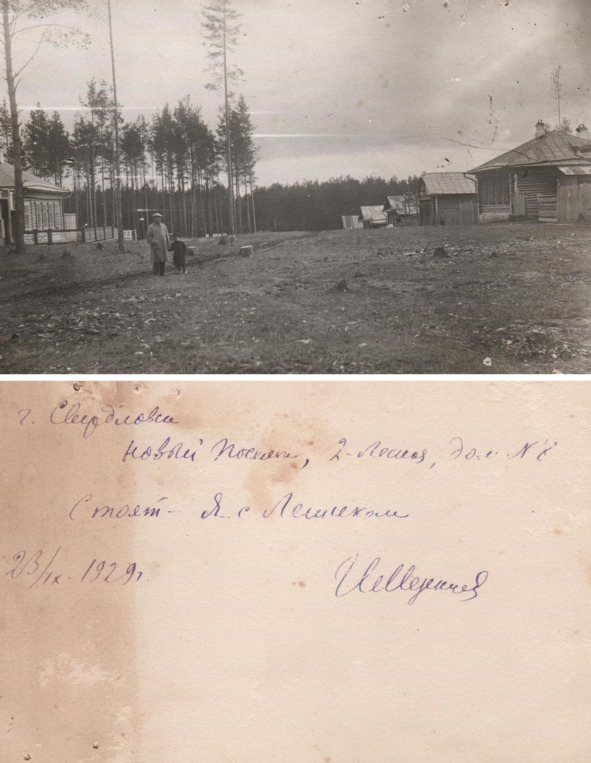 г. Свердловск
Новый Поселок, 2-Лесная, дом № 8
Стоят - Я с Лешиком
23/IX-1929г.